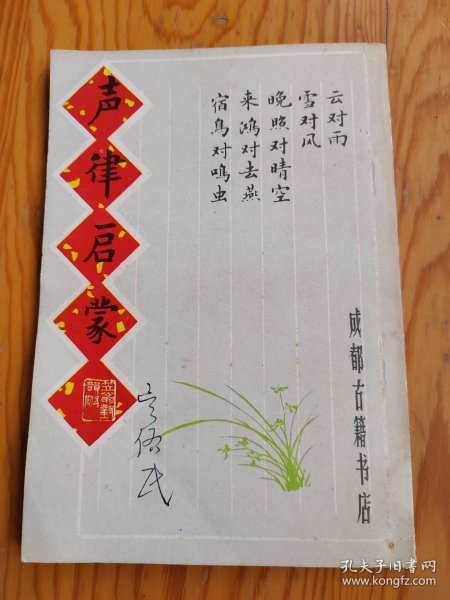 云对雨
雪对风
晚照对晴空
来鸿对去燕
宿鸟对鸣虫
声律启蒙
笠翁对韵附
成都古籍书店
孔夫子旧书网
www.kongfz.com